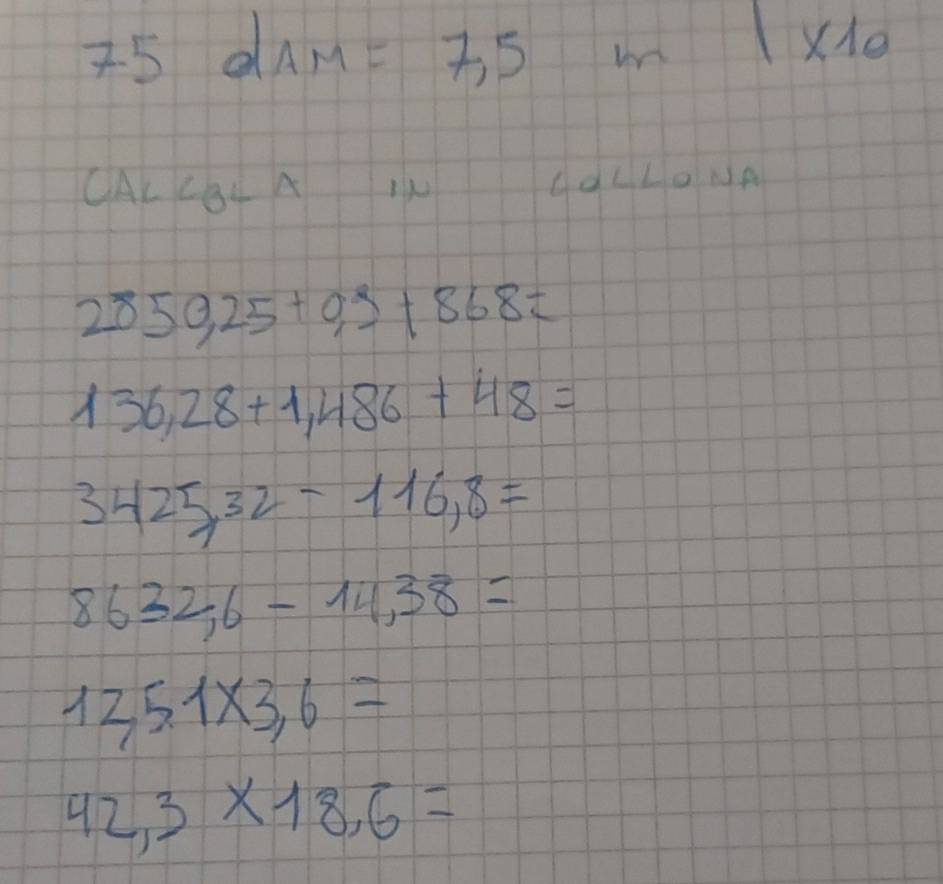 75 dAM = 7,5 m | x10
CALCOLA IN COLLONA
2850,25 + 0,9 + 868 =
136,28 + 1,486 + 48 =
3425,32 - 116,8 =
8632,6 - 14,38 =
12,51 x 3,6 =
42,3 x 18,6 =